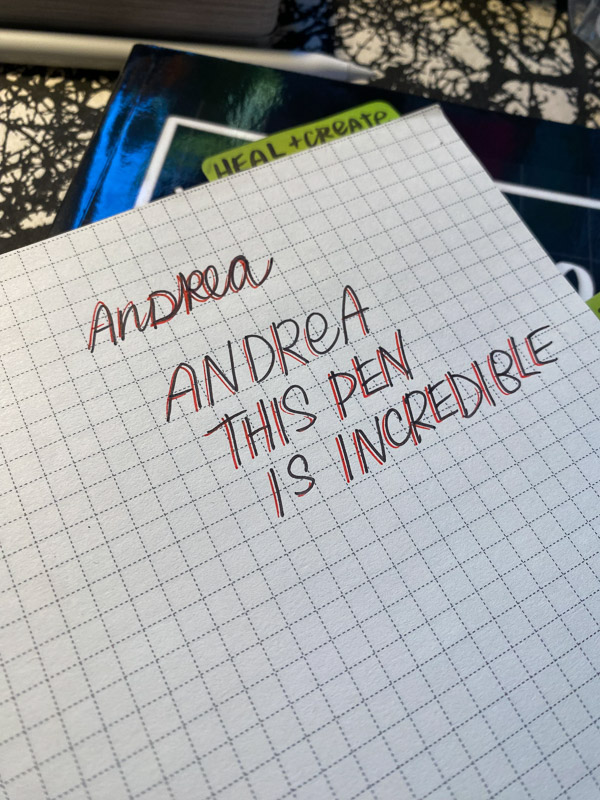 HEAL + CREATE
ANDRea
ANDReA
THIS PEN
IS INCREDIBLE